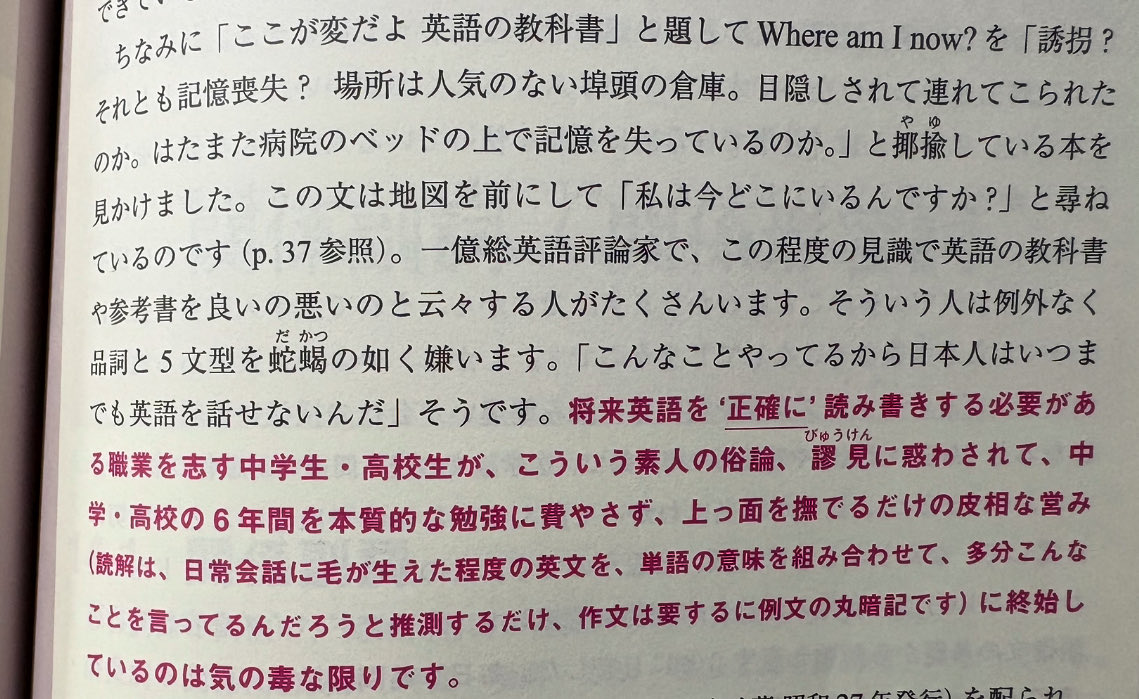 できてい
ちなみに「ここが変だよ 英語の教科書」と題して Where am I now? を「誘拐？
それとも記憶喪失？ 場所は人気のない埠頭の倉庫。目隠しされて連れてこられた
のか。はたまた病院のベッドの上で記憶を失っているのか。」と揶揄している本を
見かけました。この文は地図を前にして「私は今どこにいるんですか？」と尋ね
ているのです（p. 37 参照）。一億総英語評論家で、この程度の見識で英語の教科書
や参考書を良いの悪いのと云々する人がたくさんいます。そういう人は例外なく
品詞と 5 文型を蛇蝎の如く嫌います。「こんなことやってるから日本人はいつま
でも英語を話せないんだ」そうです。将来英語を ‘正確に’ 読み書きする必要があ
る職業を志す中学生・高校生が、こういう素人の俗論、謬見に惑わされて、中
学・高校の 6 年間を本質的な勉強に費やさず、上っ面を撫でるだけの皮相な営み
（読解は、日常会話に毛が生えた程度の英文を、単語の意味を組み合わせて、多分こんな
ことを言ってるんだろうと推測するだけ、作文は要するに例文の丸暗記です）に終始し
ているのは気の毒な限りです。
昭和 27 年発行）を配られ